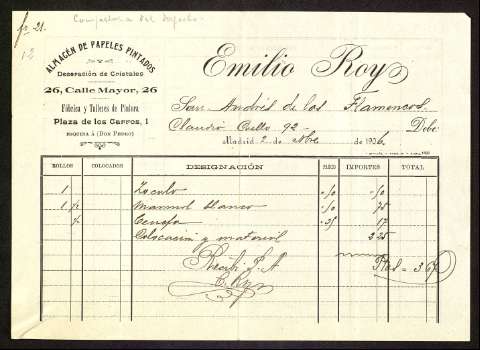 fº 21.
12
ALMACÉN DE PAPELES PINTADOS
Decoración de Cristales
26, Calle Mayor, 26
Fábrica y Talleres de Pintura
Plaza de los Carros, 1
ESQUINA Á (DON PEDRO)
Emilio Roy
San Andrés de los Flamencos.
Claudio Coello 92 Debe
Madrid 2 de de 1906.
ROLLOS COLOCADOS DESIGNACIÓN PRECIO IMPORTES TOTAL
1 Zocalo
1 Marmol blanco 75
Cenefa 17
Colocación y material 2 25
Recibi
E. Roy